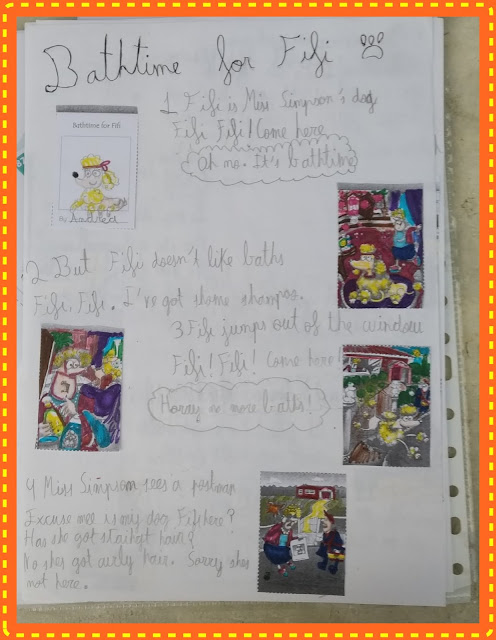 Bathtime for Fifi
1 Fifi is Miss Simpson's dog
Fifi Fifi! Come here
Oh no. It's bathtime
Bathtime for Fifi
By
2 But Fifi doesn't like baths
Fifi, Fifi. I've got shome shampoo.
3 Fifi jumps out of the window
Fifi! Fifi! Come here!
Horay no more baths!
4 Miss Simpson sees a postman
Excuse mee is my dog Fifi here?
Has she got staihgt hair?
No shes got curly hair. Sorry shes
not here.